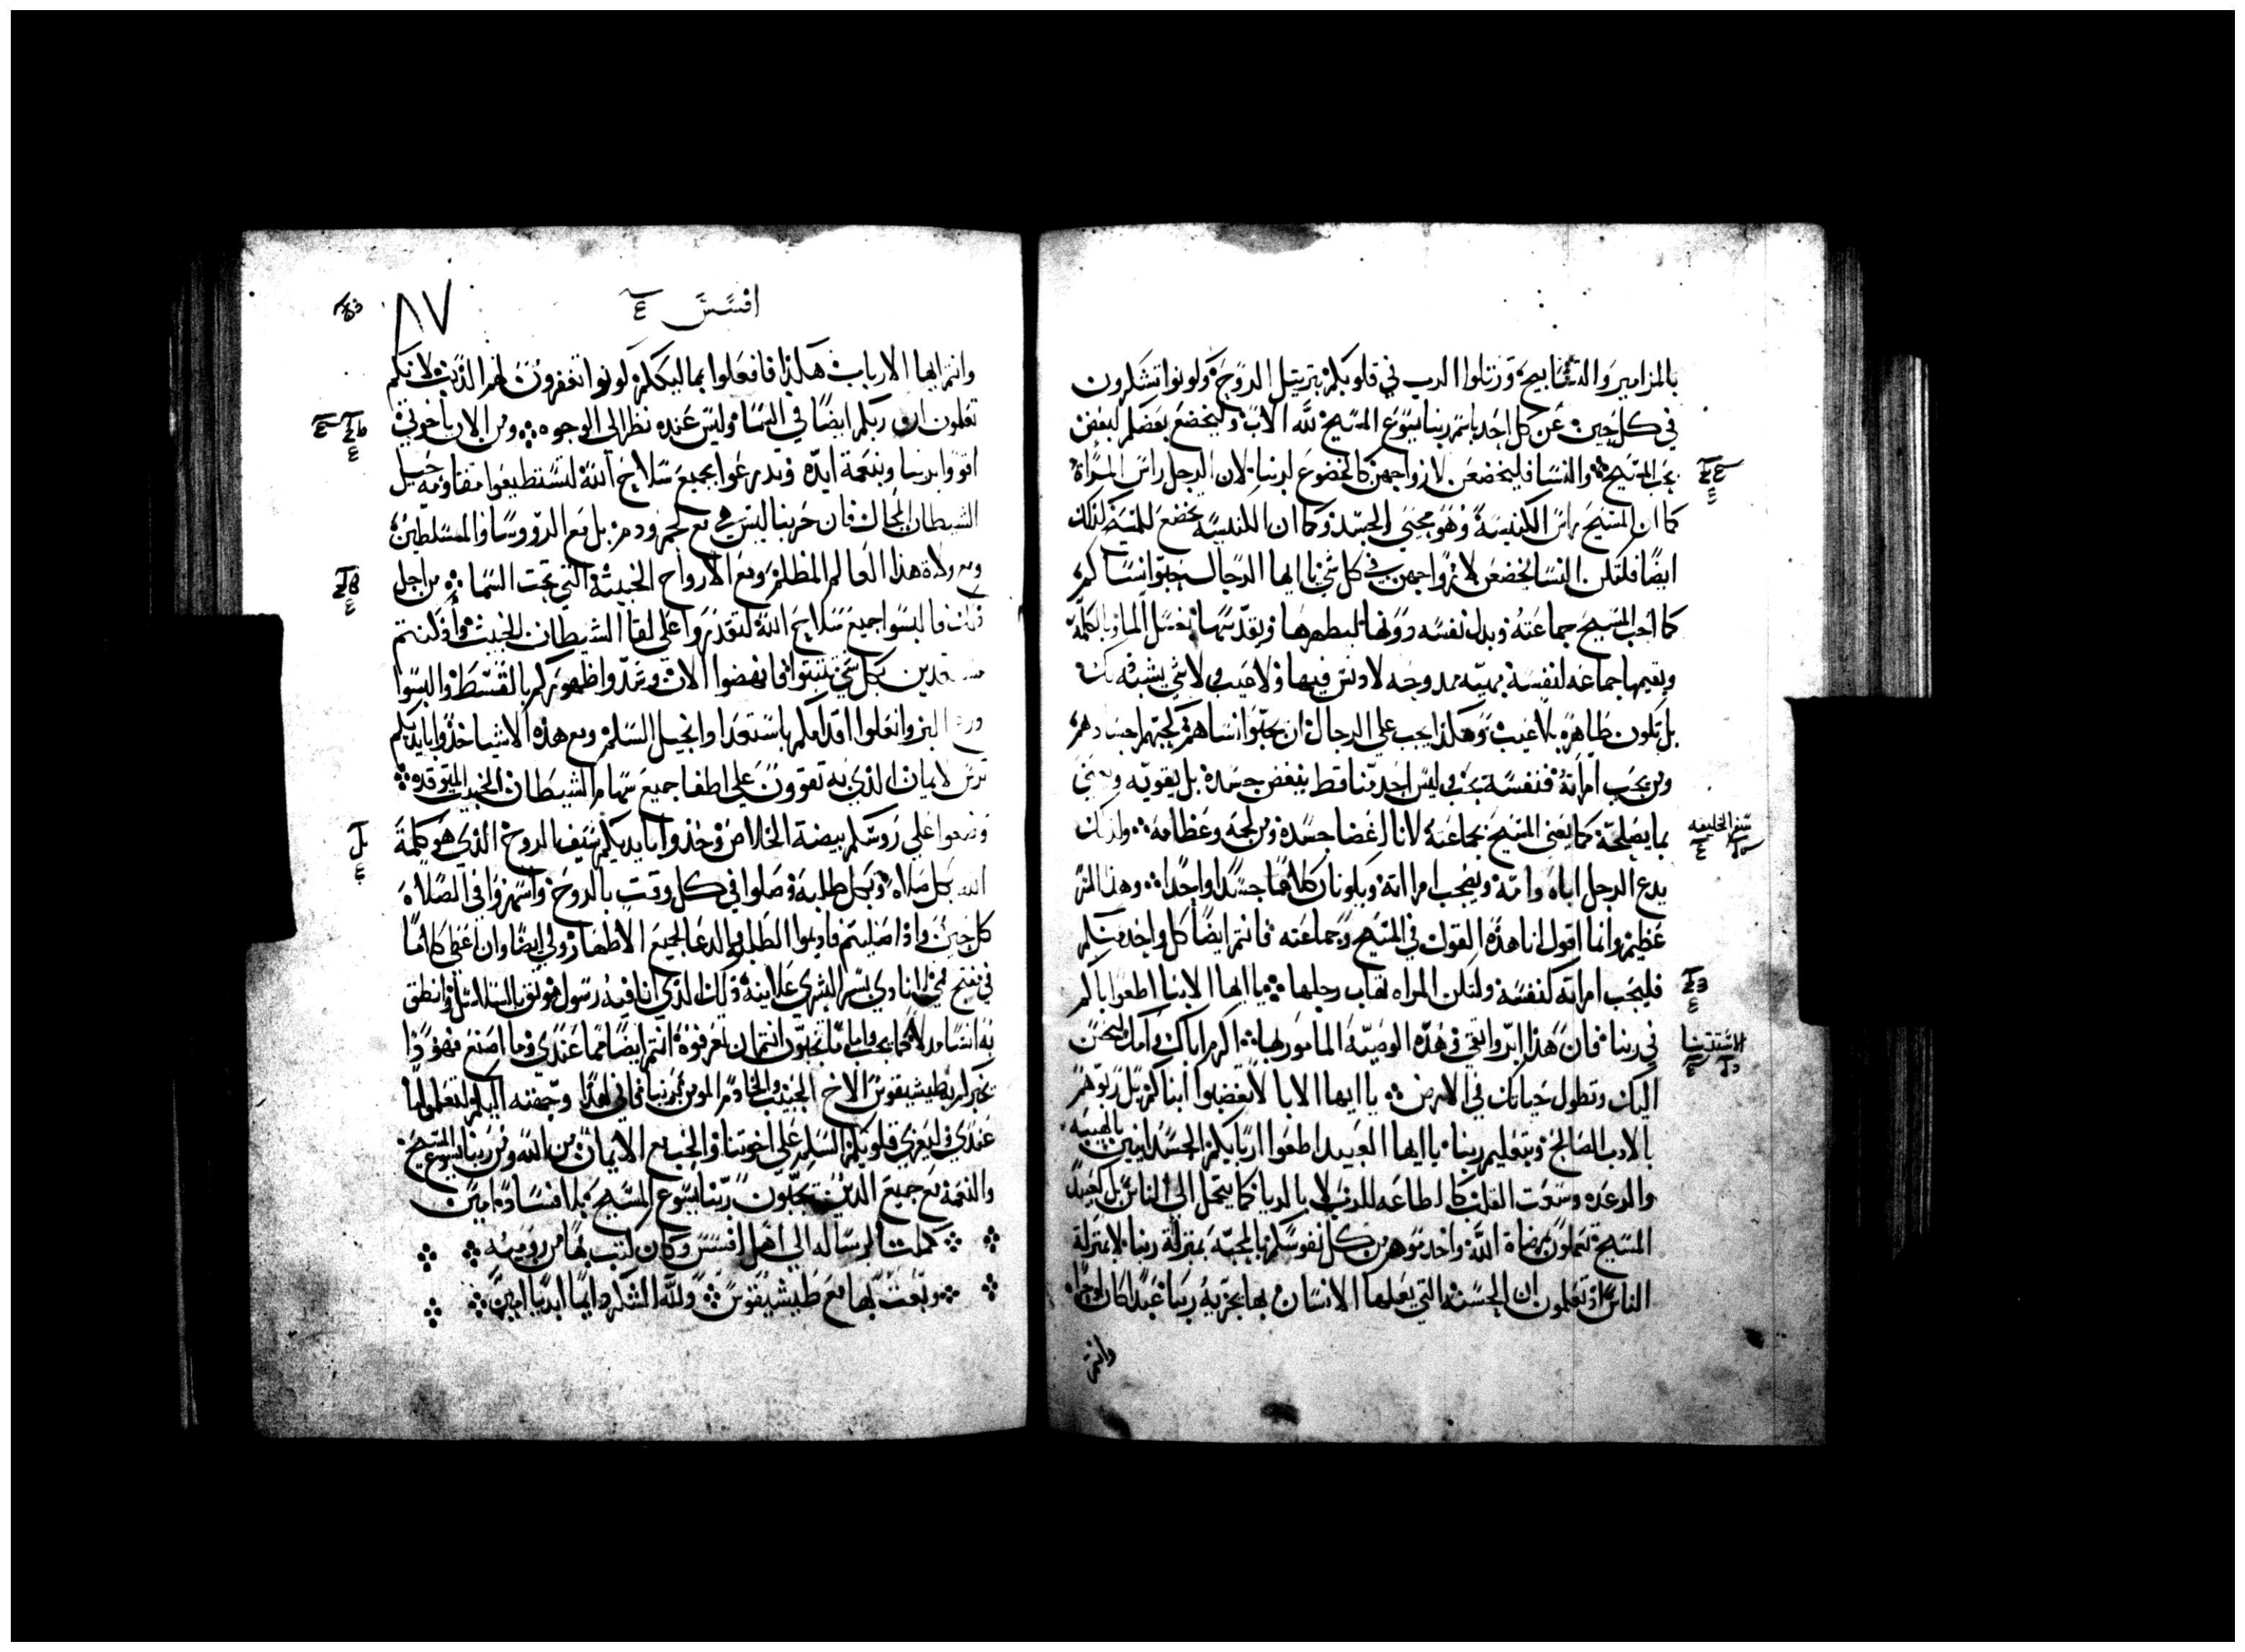 بالمزامير والتسابيح ورتلوا الرب في قلوبكم بترتيل الروح وكونوا تشكرون
في كل حين عن كل احد باسم ربنا يسوع المسيح لله الاب وليخضع بعضكم لبعض
بحب المسيح والنسا فليخضعن لازواجهن كالخضوع لربنا لان الرجل راس المراة
كما ان المسيح راس الكنيسة وهو محيي الجسد وكما ان الكنيسه تخضع للمسيح كذلك
ايضا فلتكن النسا يخضعن لازواجهن في كل شي يا ايها الرجال حبوا نساكم
كما احب المسيح جماعته وبدل نفسه دونها ليطهرها ويقدسها بغسل الما وبالكلمة
ويقيمها جماعه لنفسه بهيه ممدوحه لا دنس فيها ولا عيب ولا شي يشبه ذلك
بل تكون طاهره بلا عيب وهكذا يجب على الرجال ان يحبوا نساهم كحبهم اجسادهم
ومن يحب امراته فنفسه يحب ليس احد منا قط يبغض جسده بل يقويه ويعني
بما يصلحه كما يعني المسيح بجماعته لانا اعضا جسده ومن لحمه وعظامه ولذلك
سفر الخليقه
يدع الرجل اباه وامه ويصحب امراته ويكونان كلاهما جسدا واحدا وهذا السر
عظيم وانما اقول انا هذه القول في المسيح وجماعته فانتم ايضا كل واحد منكم
فليحب امراته كنفسه ولتكن المراه تهاب رجلها يا ايها الابنا اطعوا اباكم
في ربنا فان هذا ابر واتقى في هذه الوصيه المامور بها اكرم اباك وامك ليحسن
الاستثنا
اليك وتطول حياتك في الارض يا ايها الابا لا تغضبوا ابناكم بل ربوهم
بالادب الصالح وبتعليم ربنا يا ايها العبيد اطعوا اربابكم الجسدانيين بالهيبه
والرعده وسعت القلب كاطاعه للرب لا بالريا كما يتحمل الى الناس بل كعبيد
المسيح تعملون بمرضاة الله واخدموهم من كل نفوسكم بالمحبه بمنزلة ربنا لا بمنزلة
الناس اذ تعلمون ان الحسنه التي يعملها الانسان بها يجزيه ربنا عبدا كان او حرا
وانتم
افسس
٨٧
وانتم ايها الارباب هكذا فافعلوا بمماليككم كونوا تغفرون لهم الذنب لانكم
تعلمون ان ربكم ايضا في السما وليس عنده نظر الى الوجوه ومن الان يا خوتي
اقووا بربنا وبنعمة ايده وتدرعوا بجميع سلاح الله لتستطيعوا مقاومه حيل
الشيطان المحال فان حربنا ليس هي مع لحم ودم بل مع الرووسا والمسلطين
ومع ولاة هذا العالم المظلم ومع الارواح الخبيثه التي تحت السما من اجل
ذلك فالبسوا جميع سلاح الله لتقدروا على لقا الشيطان الخبيث واذ كنتم
مستعدين بكل شي تثبتوا فانهضوا الان وشدوا ظهوركم بالقسط والبسوا
درع البر وانعلوا اقدامكم باستعدا وانجيل السلم ومع هذه الاشيا خذوا بايديكم
ترس الايمان الذي به تقوون على اطفا جميع سهام الشيطان الخبيث المتوقده
وضعوا على روسكم بيضة الخلاص وخذوا بايديكم سيف الروح الذي هو كلمة
الله بكل صلاه وبكل طلبه وصلوا في كل وقت بالروح واسهروا في الصلاه
كل حين واذا صليتم فاديموا الطلبه والدعا لجميع الاطهار ولي ايضا وان اعطى كلاما
في فتح فمي لنادي بسر البشرى علانية ذلك الذي انا فيه رسول موثق بالسلاسل وانطق
به انسا مدلا كما يجب وانا احب ان تعرفوه انتم ايضا مما عندي وما اصنع فهوذا
يخبركم به طيشيقوس الاخ الحبيب والخادم المومن بربنا فاني لهذا وجهته اليكم ولتعلموا ما
عندي وليعزي قلوبكم السلم على اخوتنا والحب مع الايمان من الله ومن ربنا يسوع المسيح
والنعمة مع جميع الذين يحبون ربنا يسوع المسيح بلا افساد امين
كملت الرساله الى اهل افسس وكان كتب بها من روميه
وبعث بها مع طيشيقوس ولله الشكر دايما ابديا امين